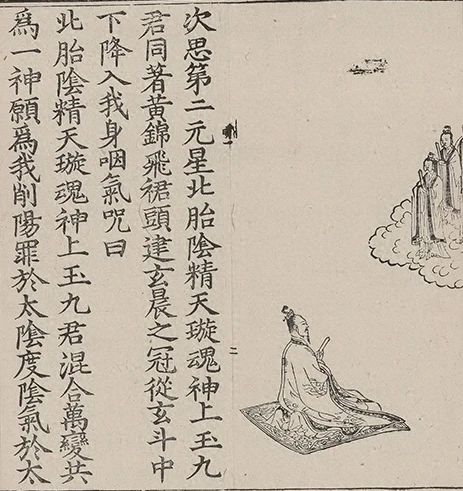 次思第二元星北胎陰精天璇魂神上玉九
君同著黃錦飛裙頭建玄晨之冠從玄斗中
下降入我身咽氣咒曰
北胎陰精天璇魂神上玉九君混合萬變共
爲一神願爲我削陽罪於太陰度陰氣於太
二